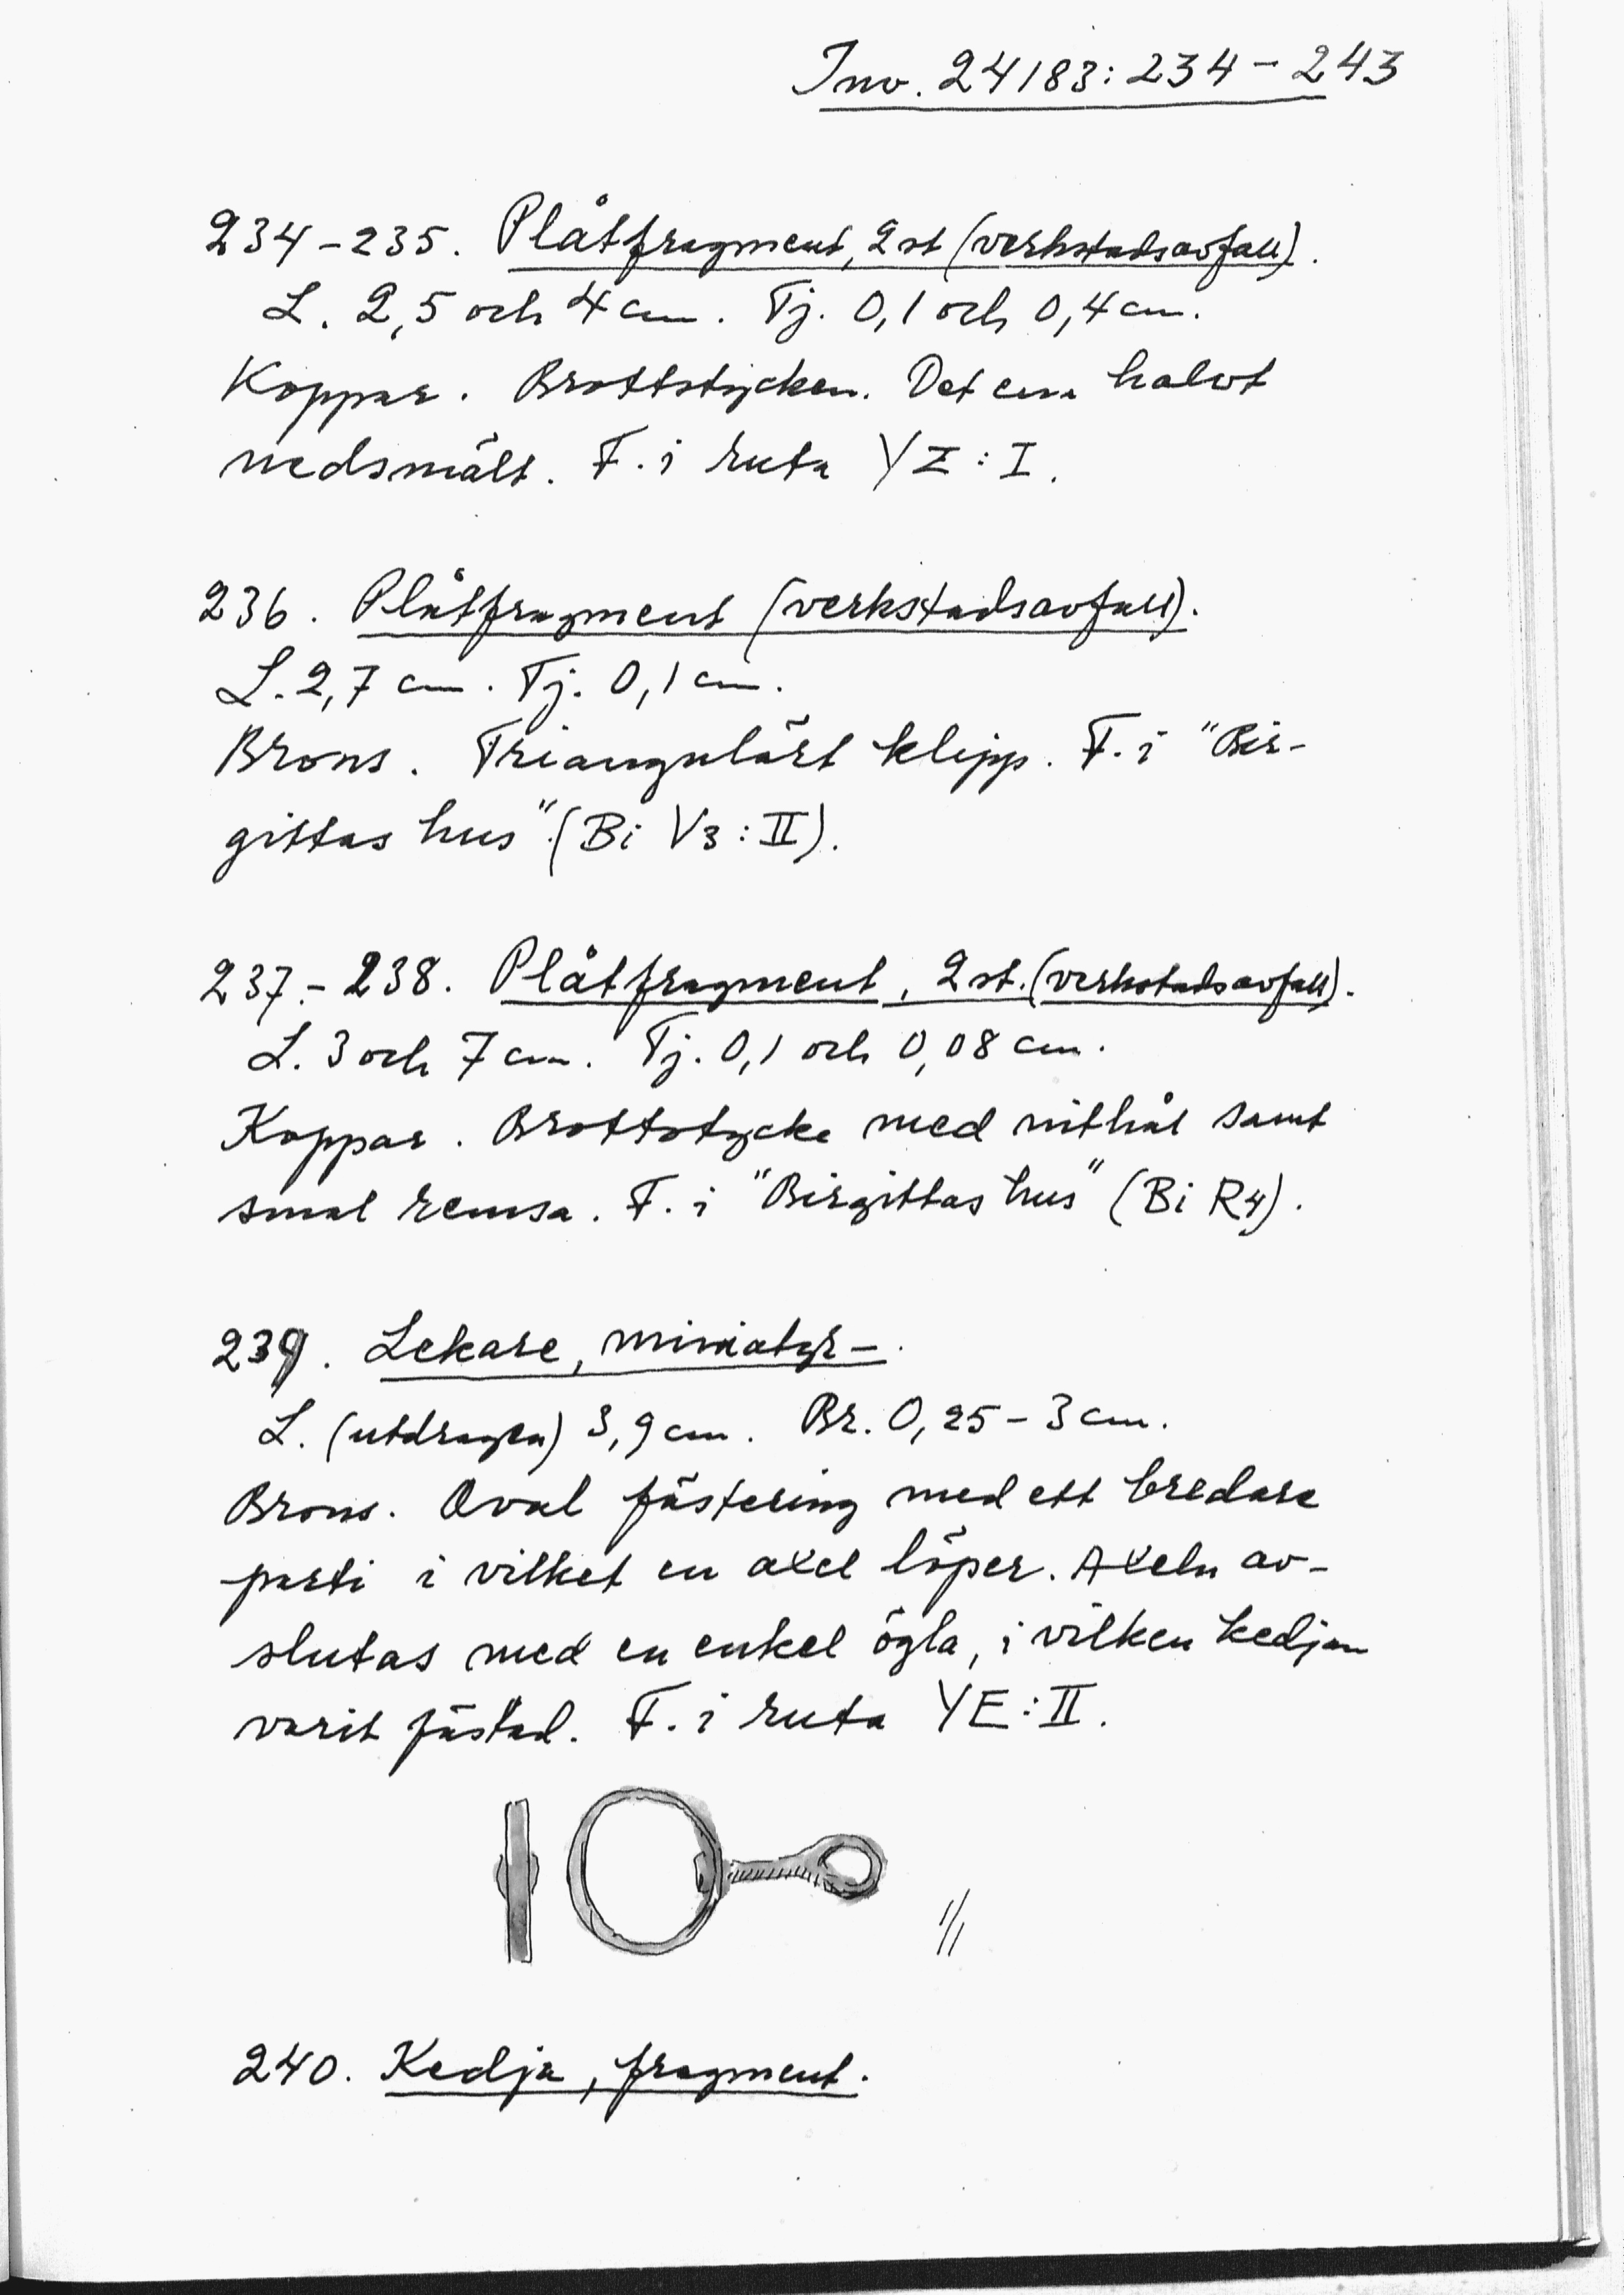 Inv. 24183:234-243
234-235. Plåtfragment, 2 st (verkstadsavfall).
L. 2,5 och 4 cm. Tj. 0,1 och 0,4 cm.
Koppar. Brottstycken. Det ena halvt
nedsmält. F. i ruta YZ:I.
236. Plåtfragment (verkstadsavfall).
L. 2,7 cm. Tj. 0,1 cm.
Brons. Triangulärt klipp. F. i "Bir-
gittas hus" (Bi V3:II).
237-238. Plåtfragment, 2 st. (verkstadsavfall).
L. 3 och 7 cm. Tj. 0,1 och 0,08 cm.
Koppar. Brottstycke med nithål samt
smal remsa. F. i "Birgittas hus" (Bi R4).
239. Lekare, miniatyr-.
L. (utdragen) 3,9 cm. Br. 0,25-3 cm.
Brons. Oval fästering med ett bredare
parti i vilket en axel löper. Axeln av-
slutas med en enkel ögla, i vilken kedjan
varit fästad. F. i ruta YE:II.
1/1
240. Kedja, fragment.